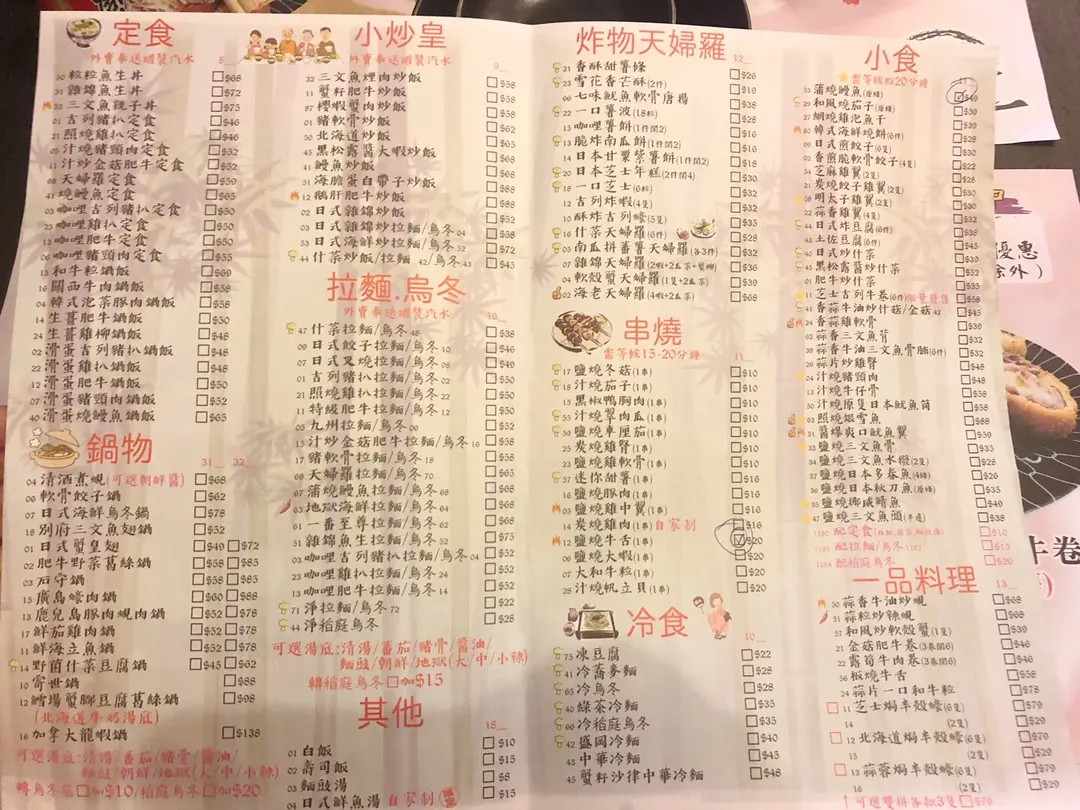 定食
外賣奉送罐裝汽水
5__
50 粒粒魚生丼 $68
51 雜錦魚生丼 $72
52 三文魚親子丼 $75
01 吉列豬扒定食 $46
21 照燒雞扒定食 $46
汁燒豬頸肉定食 $52
11 汁炒金菇肥牛定食 $52
68 天婦羅定食 $59
41 燒鰻魚定食 $65
03 咖哩吉列豬扒定食 $50
23 咖哩雞扒定食 $50
13 咖哩肥牛定食 $50
06 咖哩豬頸肉定食 $55
15 和牛粒鍋飯 $69
16 關西牛肉鍋飯 $58
04 韓式泡菜豚肉鍋飯 $58
14 生薑肥牛鍋飯 $50
24 生薑雞柳鍋飯 $50
02 滑蛋吉列豬扒鍋飯 $48
22 滑蛋雞扒鍋飯 $48
12 滑蛋肥牛鍋飯 $50
07 滑蛋豬頸肉鍋飯 $52
40 滑蛋燒鰻魚鍋飯 $65
鍋物
31__ 32__
04 清酒煮蜆(可選朝鮮醬) $68
06 軟骨餃子鍋 $62
07 日式海鮮烏冬鍋 $78
18 別府三文魚翅鍋 $52
01 日式蟹皇翅 $49 $72
02 肥牛野菜葛絲鍋 $58 $85
03 石守鍋 $58 $85
15 廣島蠔肉鍋 $60 $88
13 鹿兒島豚肉蜆肉鍋 $52 $78
17 鮮茄雞肉鍋 $52 $78
11 鮮海立魚鍋 $52 $78
14 野菌什菜豆腐鍋 $45 $62
10 寄世鍋 $88
12 鱈場蟹腳豆腐葛絲鍋 $98
(北海道牛奶湯底)
16 加拿大龍蝦鍋 $138
可選湯底:清湯/番茄/豬骨/醬油/
麵豉/朝鮮/地獄(大/中/小辣)
轉烏冬底 加$10/稻庭烏冬 加$20
小炒皇
外賣奉送罐裝汽水
9__
32 三文魚煙肉炒飯 $58
11 蟹籽肥牛炒飯 $58
87 櫻蝦蟹肉炒飯 $58
01 豬軟骨炒飯 $62
50 北海道炒飯 $65
45 黑松露醬大蝦炒飯 $65
41 鰻魚炒飯 $68
51 海膽蛋白帶子炒飯 $68
12 鵝肝肥牛炒飯 $88
02 日式雜錦炒飯 $52
03 日式雜錦炒拉麵/烏冬 04 $58
53 日式海鮮炒拉麵/烏冬 52 $72
44 什菜炒飯/拉麵 42/烏冬 43 $45
拉麵.烏冬
外賣奉送罐裝汽水
10__
47 什菜拉麵/烏冬 48 $38
09 日式餃子拉麵/烏冬 10 $46
07 日式叉燒拉麵/烏冬 08 $49
01 吉列豬扒拉麵/烏冬 02 $50
21 照燒雞扒拉麵/烏冬 22 $50
11 特級肥牛拉麵/烏冬 12 $50
05 九州拉麵/烏冬 06 $52
15 汁炒金菇肥牛拉麵/烏冬 16 $58
17 豬軟骨拉麵/烏冬 18 $58
69 天婦羅拉麵/烏冬 70 $65
67 蒲燒鰻魚拉麵/烏冬 68 $68
63 地獄海鮮拉麵/烏冬 64 $68
61 一番至尊拉麵/烏冬 62 $68
51 雜錦魚生拉麵/烏冬 52 $75
03 咖哩吉列豬扒拉麵/烏冬 04 $52
23 咖哩雞扒拉麵/烏冬 24 $52
13 咖哩肥牛拉麵/烏冬 14 $52
71 淨拉麵/烏冬 72 $22
44 淨稻庭烏冬 $28
可選湯底:清湯/番茄/豬骨/醬油/
麵豉/朝鮮/地獄(大/中/小辣)
轉稻庭烏冬 加$15
其他
18__
01 白飯 $10
02 壽司飯 $15
03 麵豉湯 $8
04 日式鮮魚湯 自家制 $15
炸物天婦羅
12__
21 香酥甜薯條 $26
23 雪花香芒酥(2件) $19
66 七味魷魚軟骨唐揚 $38
22 一口薯波(18粒) $28
15 咖哩薯餅(1件開2) $16
13 脆炸南瓜餅(1件開2) $16
14 日本甘栗紫薯餅(1件開2) $18
20 日本芝士年糕(2件開4) $30
18 一口芝士(6粒) $30
12 吉列炸蝦(4隻) $32
10 酥炸吉列蠔(5隻) $35
16 什菜天婦羅(6件) $28
05 南瓜拼蕃薯天婦羅(各3件) $28
07 雜錦天婦羅(2蝦+2瓜茶+蟹柳) $36
04 軟殼蟹天婦羅(1隻+2瓜茶) $39
02 海老天婦羅(4蝦+2瓜茶) $68
串燒
需等候15-20分鐘
11__
17 鹽燒冬菇(1串) $10
18 汁燒茄子(1串) $10
15 黑椒鴨胸肉(1串) $10
55 汁燒翠肉瓜(1串) $10
59 鹽燒車厘茄(1串) $10
25 炭燒雞腎(1串) $10
23 鹽燒雞軟骨(1串) $10
57 迷你甜薯(1串) $15
16 鹽燒豚肉(1串) $16
05 鹽燒雞中翼(1串) $16
14 炭燒雞肉(1串)自家制 $16
12 鹽燒牛舌(1串) $20
06 鹽燒大蝦(1串) $20
07 大和牛粒(1串) $20
28 汁燒帆立貝(1串) $20
冷食
10__
75 凍豆腐 $22
41 冷蕎麥麵 $28
65 冷烏冬 $28
40 綠茶冷麵 $35
66 冷稻庭烏冬 $35
42 盛岡冷麵 $40
43 中華冷麵 $45
45 蟹籽沙律中華冷麵 $48
小食
需等候約20分鐘
53 蒲燒鰻魚(原條) $49
29 和風燒茄子(原條) $39
27 網燒雞泡魚干 $39
60 韓式海鮮燒餅(6件) $39
09 日式煎餃子(6隻) $28
02 香煎脆軟骨餃子(4隻) $30
54 芝麻雞翼(2隻) $22
21 炭燒餃子雞翼(2隻) $30
58 明太子雞翼(2隻) $30
22 蒜香雞翼(4隻) $32
44 日式炸豆腐(6件) $28
43 土佐豆腐(6件) $32
40 日式炒什菜 $30
45 黑松露醬炒什菜 $35
01 肥牛炒什菜 $32
11 芝士吉列牛卷(6件)限量發售 $58
41 香蒜牛油炒什菜/金菇 42 $45
24 香蒜雞軟骨 $39
62 香蒜三文魚背 $32
39 蒜香牛油三文魚骨腩(6件) $32
26 蒜片炒雞腎 $32
04 汁燒豬頸肉 $48
13 汁燒牛仔骨 $58
50 汁燒原隻日本魷魚筒 $58
63 照燒銀雪魚 $88
51 醬爆爽口魷魚翼 $39
33 鹽燒三文魚骨 $35
34 鹽燒三文魚水撥(2件) $28
37 鹽燒日本多春魚(4條) $26
36 鹽燒日本秋刀魚(原條) $33
55 鹽燒挪威鯖魚 $39
47 鹽燒三文魚頭(半邊) $38
1180 配定食(白飯,前菜,麵豉湯) $10
1181 配拉麵/烏冬 1182 $15
1184 配稻庭烏冬 $20
一品料理
13__
50 蒜香牛油炒蜆 $68
51 蒜粒炒辣蜆 $68
57 和風炒軟殼蟹(1隻) $39
21 金菇肥牛卷(3卷開6) $46
22 露筍牛肉卷(3卷開6) $46
56 板燒牛舌 $58
24 蒜片一口和牛粒 $78
11 芝士焗半殼蠔(6隻) $79
14 (2隻) $29
12 北海道焗半殼蠔(6隻) $79
15 (2隻) $29
13 蒜蓉焗半殼蠔(6隻) $79
16 (2隻) $29
↑可選雙拼各款3隻 $79
優惠
除外)
牛卷